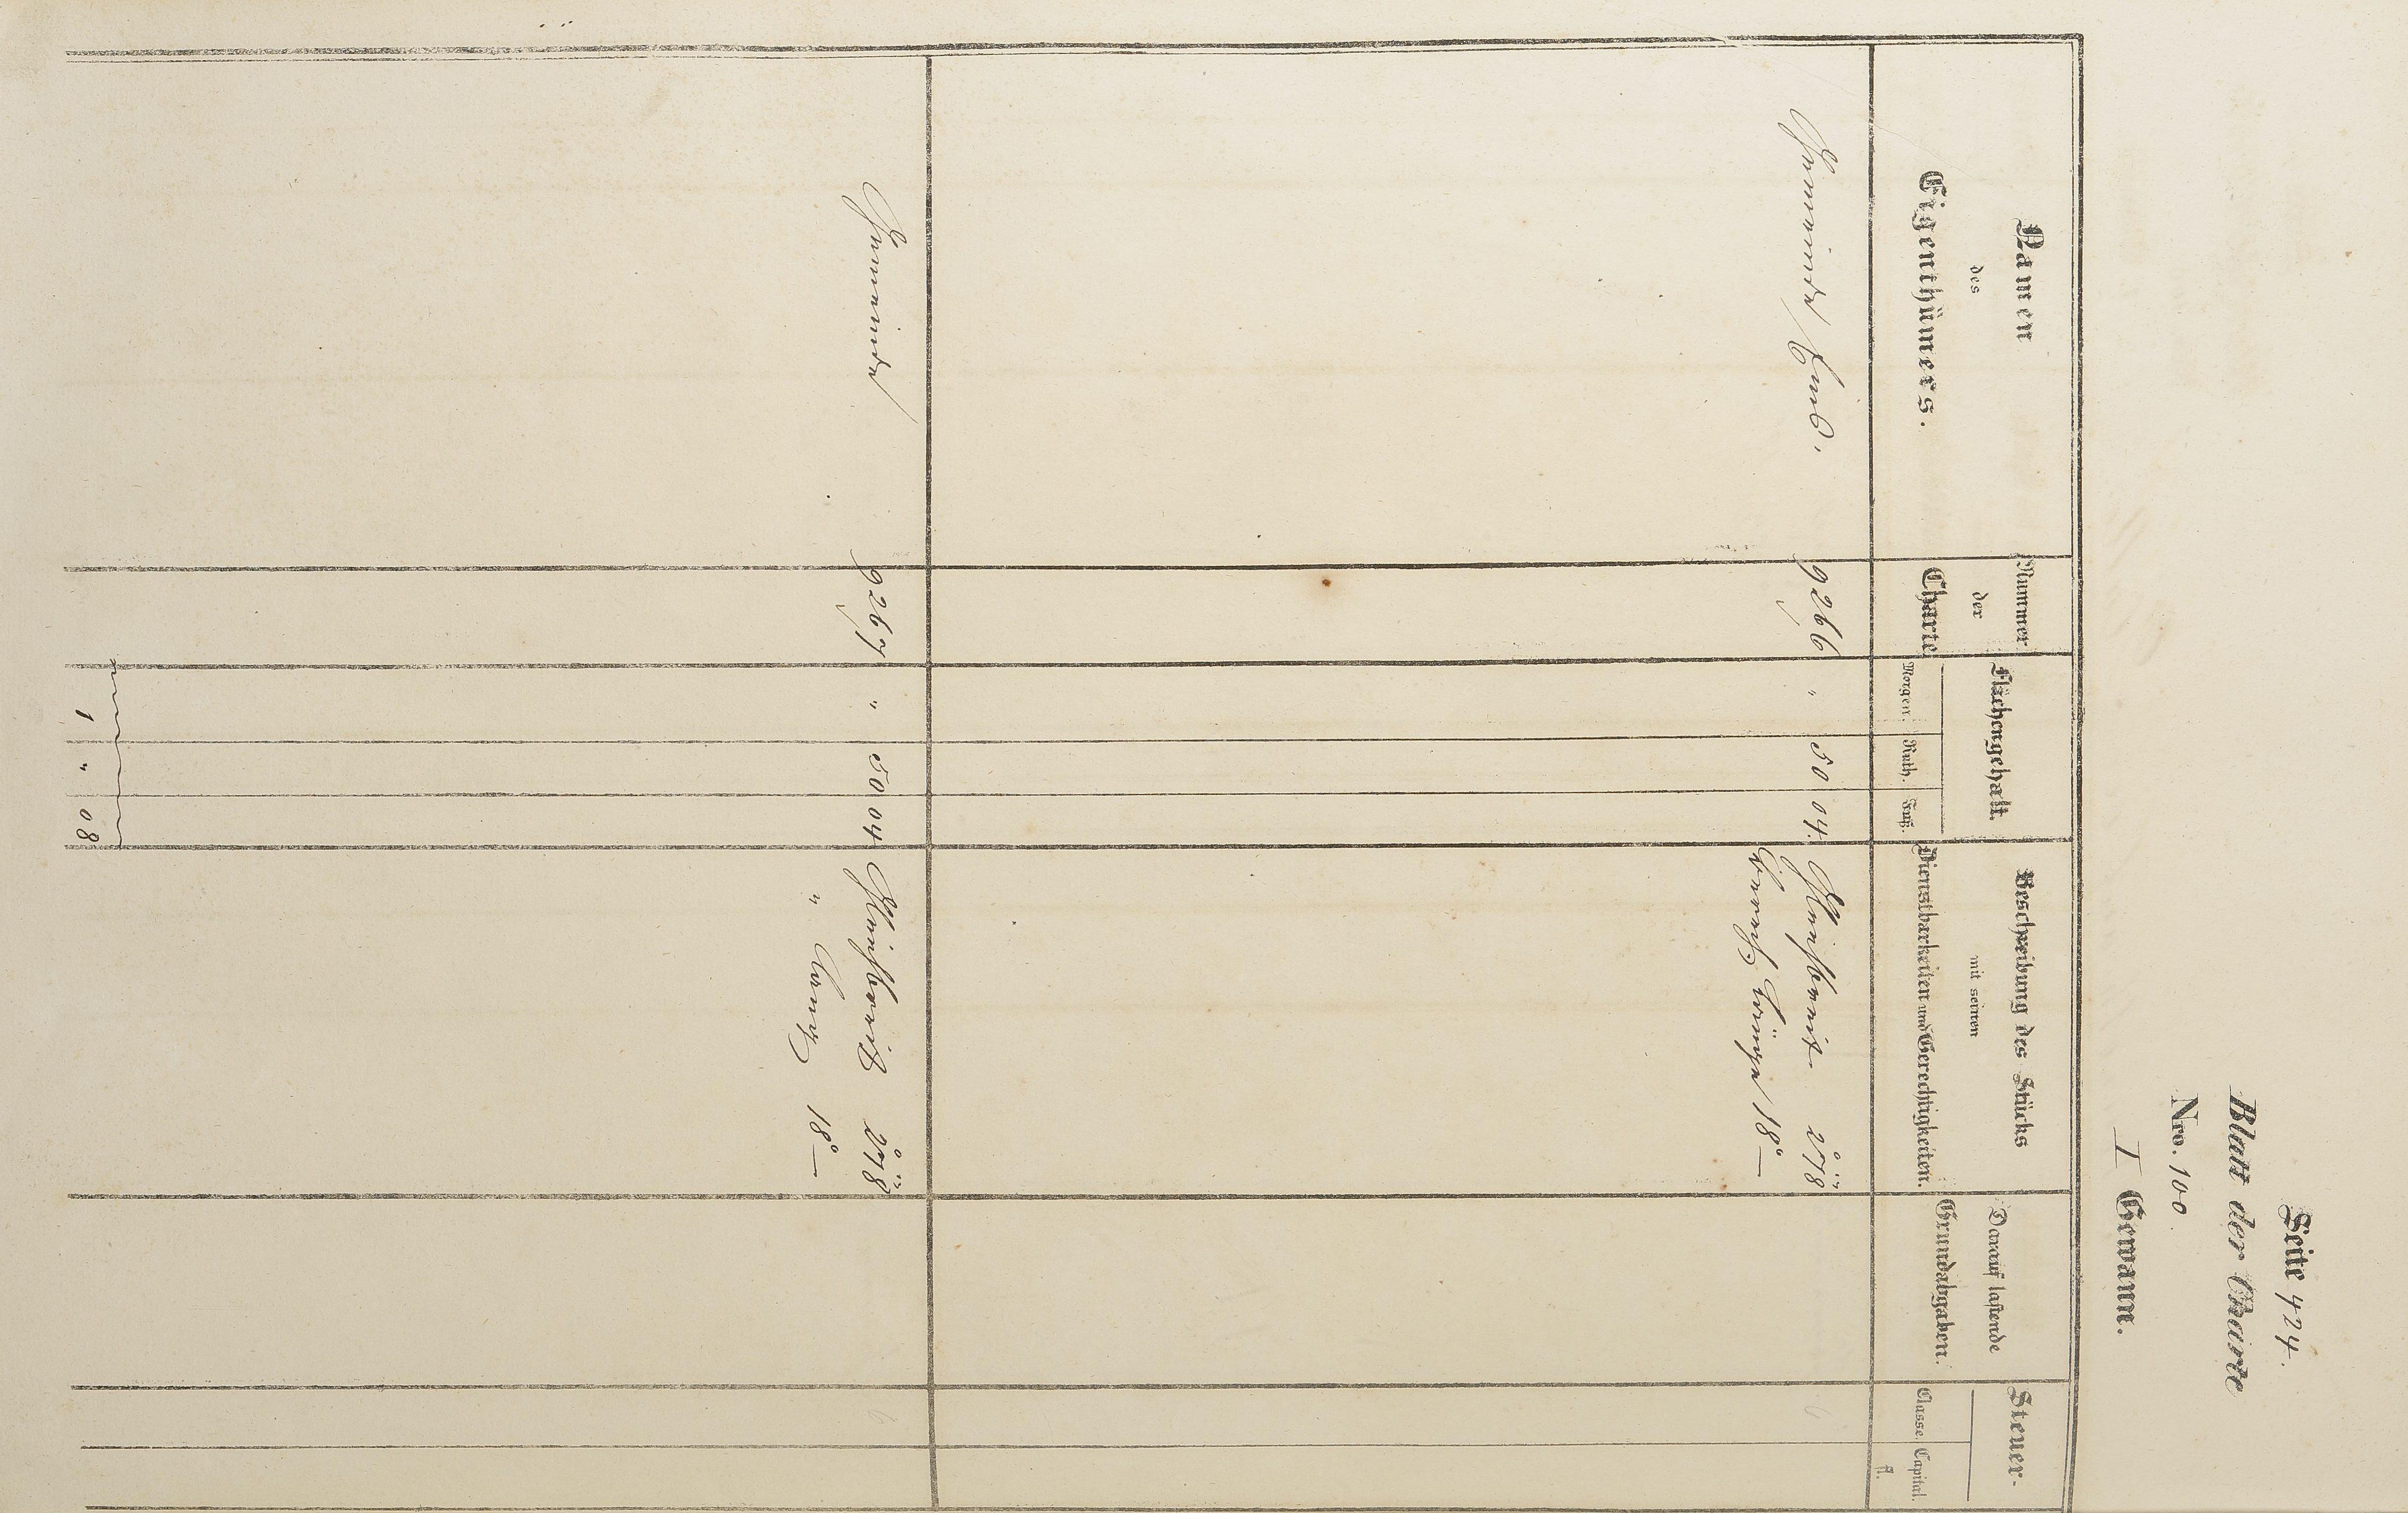 Seite 424.
Blatt der Charte
Nro. 100.
I Gewann.
Namen
des
Eigenthümers.
Nummer
der
Charte
Flächengehalt.
Morgen. Ruth. Fuß.
Beschreibung des Stücks
mit seinen
Dienstbarkeiten und Gerechtigkeiten.
Darauf lastende
Grundabgaben.
Steuer-
Classe. Capital.
fl.
Gemeinde
9266 " 50 04.
278
18° —
Gemeinde 9267 " 50 04
278
" 18° —
1 " 08